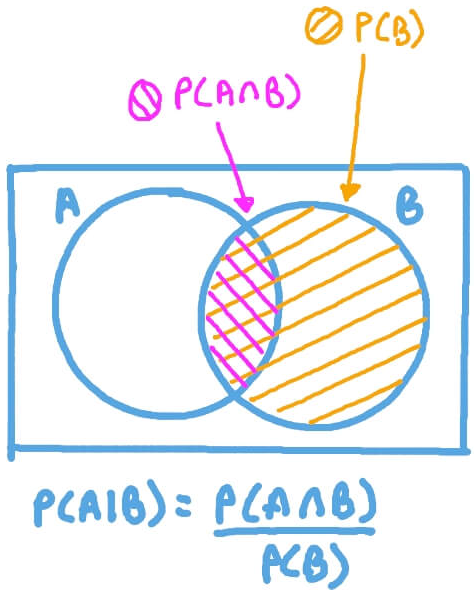 P(B)
P(A∩B)
A
B
P(A|B) = P(A∩B)
P(B)